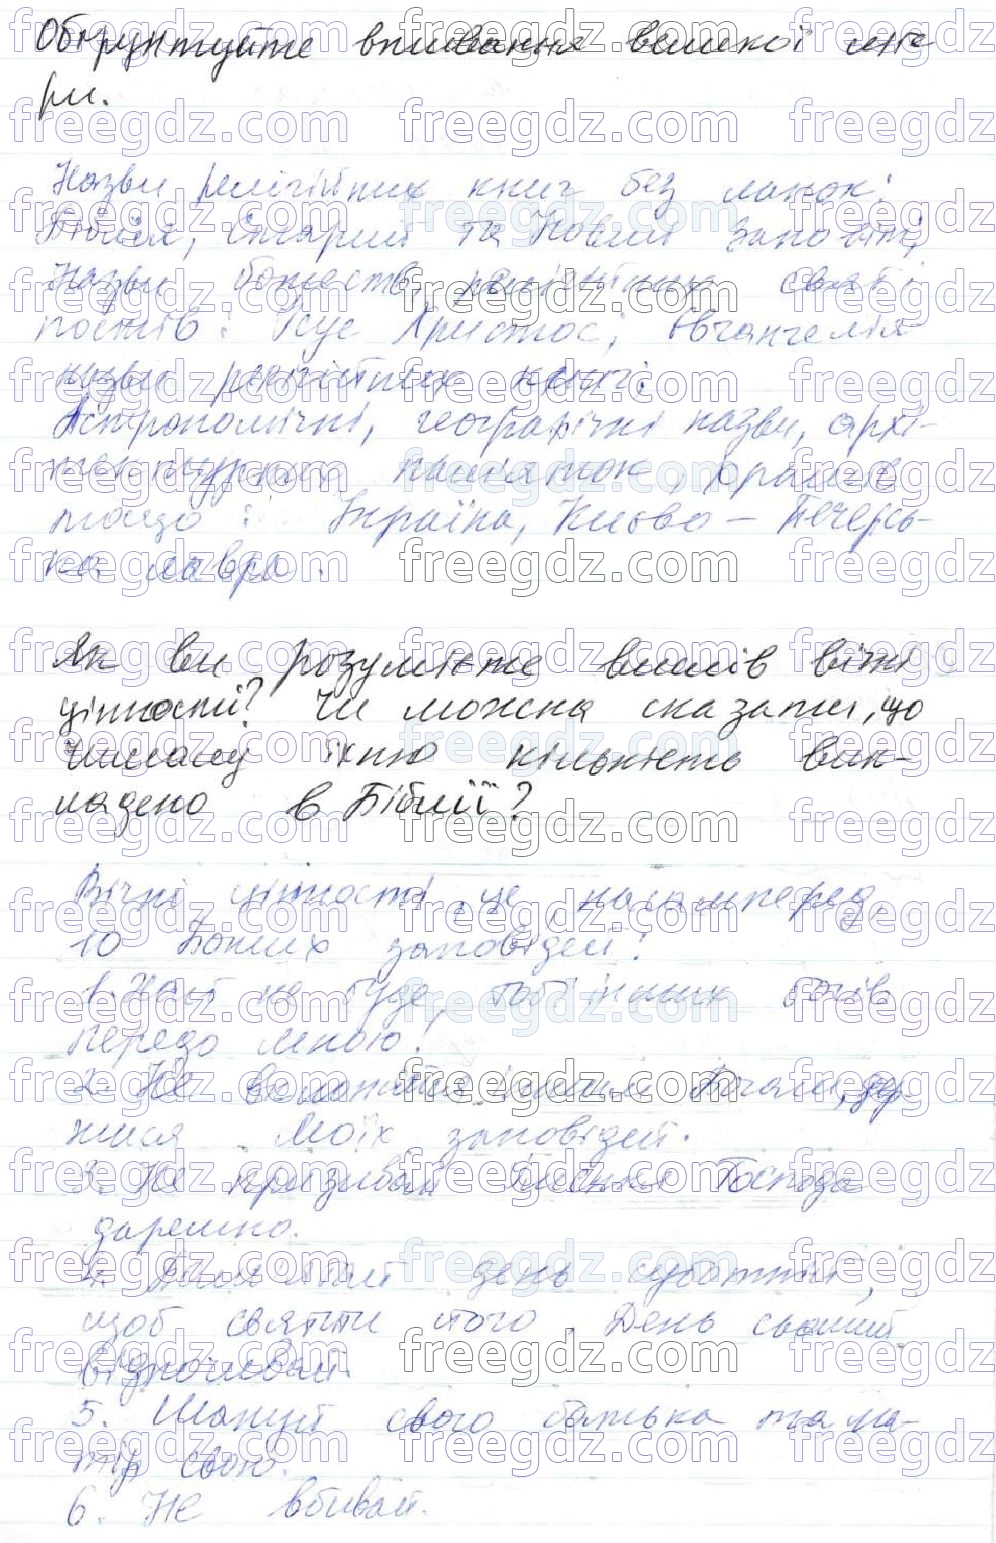 Обґрунтуйте вживання великої літе-
ри.
Назви релігійних книг без лапок:
Біблія, Старий та Новий Заповіт;
Назви божеств, релігійних свят і
постів: Ісус Христос; Євангелія
назви релігійних книг;
Астрономічні, географічні назви, архі-
тектурних пам'яток, храмів
тощо: Україна, Києво-Печерсь-
ка лавра.
Як ви розумієте вислів вічні
цінності? Чи можна сказати, що
чималу їхню кількість вик-
ладено в Біблії?
Вічні цінності, це, насамперед,
10 Божих заповідей:
1. Хай не буде тобі інших богів
передо мною!
2. Не іншим Богам, дер-
жися Моїх заповідей.
3. Не призивай Імення Господа
даремно.
4. Пам'ятай день суботній,
щоб святити його. День сьомий
відпочивай.
5. Шануй свого батька та ма-
тір свою.
6. Не вбивай.
freegdz.com